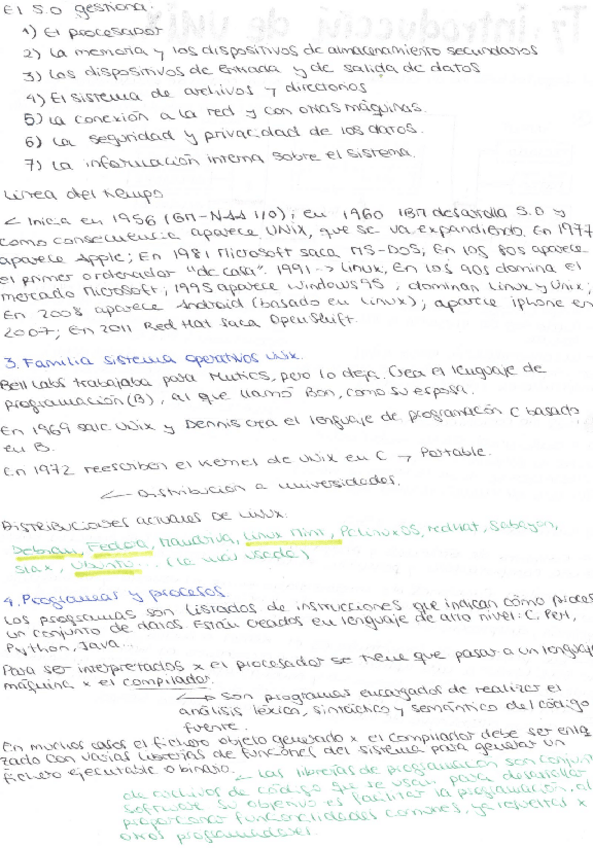 El S.O gestiona:
1) El procesador
2) La memoria y los dispositivos de almacenamiento secundarios
3) Los dispositivos de entrada y de salida de datos
4) El sistema de archivos y directorios
5) La conexión a la red y con otras máquinas.
6) La seguridad y privacidad de los datos.
7) La información interna sobre el sistema.
Línea del tiempo
Inicia en 1956 (GM-NAA I/O); en 1960 IBM desarrolla S.O y
como consecuencia aparece UNIX, que se va expandiendo. En 1977
aparece Apple; En 1981 Microsoft saca MS-DOS; En los 80s aparece
el primer ordenador "de casa". 1991 → Linux, En los 90s domina el
mercado Microsoft; 1995 aparece Windows 95, dominan Linux y Unix;
En 2008 aparece Android (basado en Linux); aparece iphone en
2007; En 2011 Red Hat saca OpenShift.
3. Familia sistema operativos Unix.
Bell Labs trabajaba para Multics, pero lo deja. Crea el lenguaje de
programación (B), al que llamó Bon, como su esposa.
En 1969 sale Unix y Dennis crea el lenguaje de programación C basado
en B.
En 1972 reescriben el kernel de Unix en C → Portable.
Distribución a universidades.
Distribuciones actuales de Linux:
Debian, Fedora, Mandriva, Linux Mint, PcLinuxOS, redhat, Sabayon,
Slax, Ubuntu... (la más usada)
4. Programas y procesos
Los programas son listados de instrucciones que indican cómo proces
un conjunto de datos. Están creados en lenguaje de alto nivel: C, Perl,
Python, Java...
Para ser interpretados x el procesador se tiene que pasar a un lenguaje
máquina x el compilador.
Son programas encargados de realizar el
análisis léxico, sintáctico y semántico del código
fuente.
En muchos casos el fichero objeto generado x el compilador debe ser enla
zado con varias librerías de funciones del sistema para generar un
fichero ejecutable o binario.
Las librerías de programación son conjunt
de archivos de código que se usan para desarrollar
software. Su objetivo es facilitar la programación, al
proporcionar funcionalidades comunes, ya resueltas x
otros programadores.